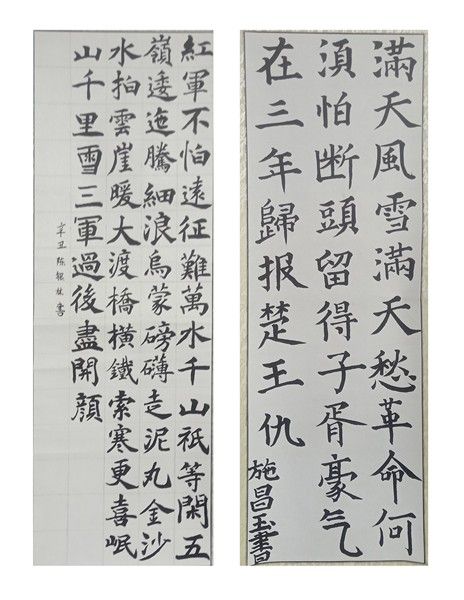 紅軍不怕遠征難萬水千山祇等閑五
嶺逶迤騰細浪烏蒙磅礴走泥丸金沙
水拍雲崖暖大渡橋橫鐵索寒更喜岷
山千里雪三軍過後盡開顏
辛丑 陈 林書
滿天風雪滿天愁革命何
湏怕断頭留得子胥豪气
在三年歸报楚王仇
施昌玉書